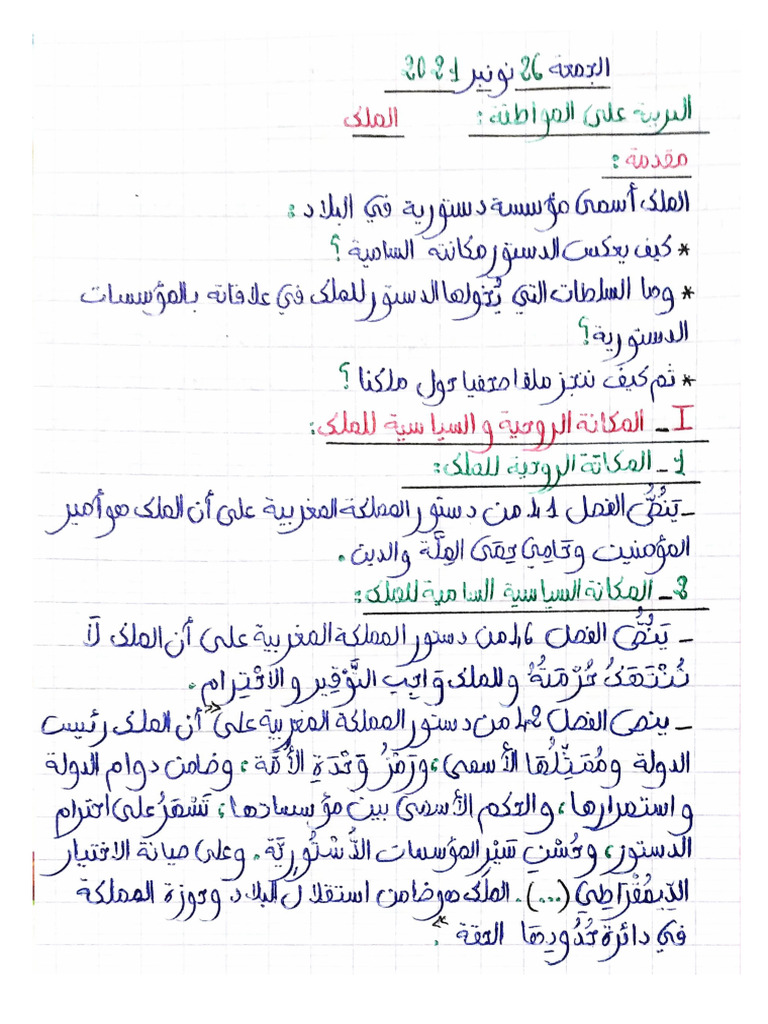 الجمعة 26 نونبر 2021
التربية على المواطنة : الملك
مقدمة :
الملك أسمى مؤسسة دستورية في البلاد :
* كيف يعكس الدستور مكانته السامية ؟
* وما السلطات التي يُخولها الدستور للملك في علاقاته بالمؤسسات
الدستورية ؟
* ثم كيف ننجز ملفا صحفيا حول ملكنا ؟
I _ المكانة الروحية و السياسية للملك :
1 _ المكانة الروحية للملك :
_ يَنُصُّ الفصل 41 من دستور المملكة المغربية على أن الملك هو أمير
المؤمنين وحَامِي حِمَى المِلَّة والدين .
2 _ المكانة السياسية السامية للملك :
_ يَنُصُّ الفصل 46 من دستور المملكة المغربية على أن الملك لَا
تُنْتَهَكُ حُرْمَتُهُ وللملك وَاجِب التَّوْقِير والاحْتِرام .
_ ينص الفصل 42 من دستور المملكة المغربية على » أن الملك رئيس
الدولة ومُمَثِّلُهَا الأسمى ، ورَمْزُ وَحْدَةِ الأُمَّة ، وضامن دوام الدولة
و استمرارها ، والحكم الأسمى بين مؤسساتها ، تَسْهَرُ على احترام
الدستور ، وحُسْنِ سَيْرِ المؤسسات الدُّسْتُورِيَّة . وعلى صيانة الاختيار
الدِّيمُقْرَاطِي (...) . الملك هو ضامن استقلال البلاد وحوزة المملكة
في دائرة حُدُودِهَا الحقة « .